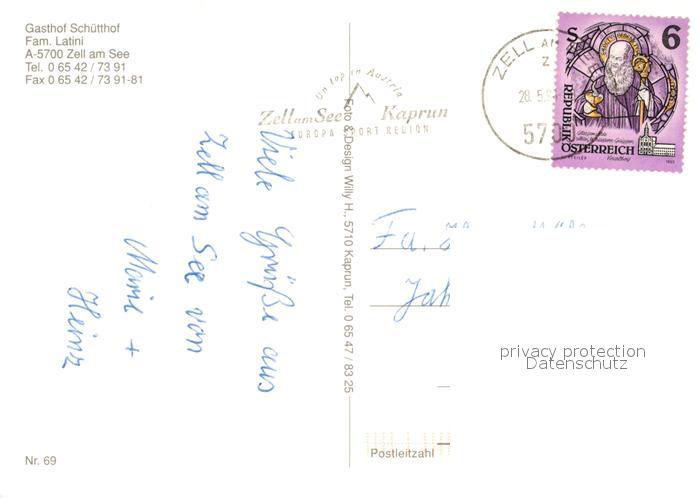 Gasthof Schütthof
Fam. Latini
A-5700 Zell am See
Tel. 0 65 42 / 73 91
Fax 0 65 42 / 73 91-81
Un top in Austria
Zell am See Kaprun
EUROPA SPORT REGION
ZELL AM
Z
28. 5. 9
570
S 6
REPUBLIK
ÖSTERREICH
Viele Grüße aus
Zell am See von
Marie +
Heinz
Foto & Design Willy H., 5710 Kaprun, Tel. 0 65 47 / 83 25
Fa.
Jah
privacy protection
Datenschutz
Postleitzahl
Nr. 69